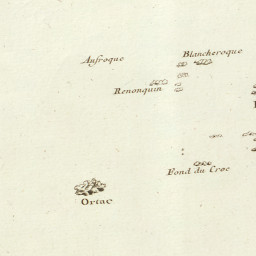 Blancheroque
Aufroque
Renonquin
Fond du Croc
Ortac